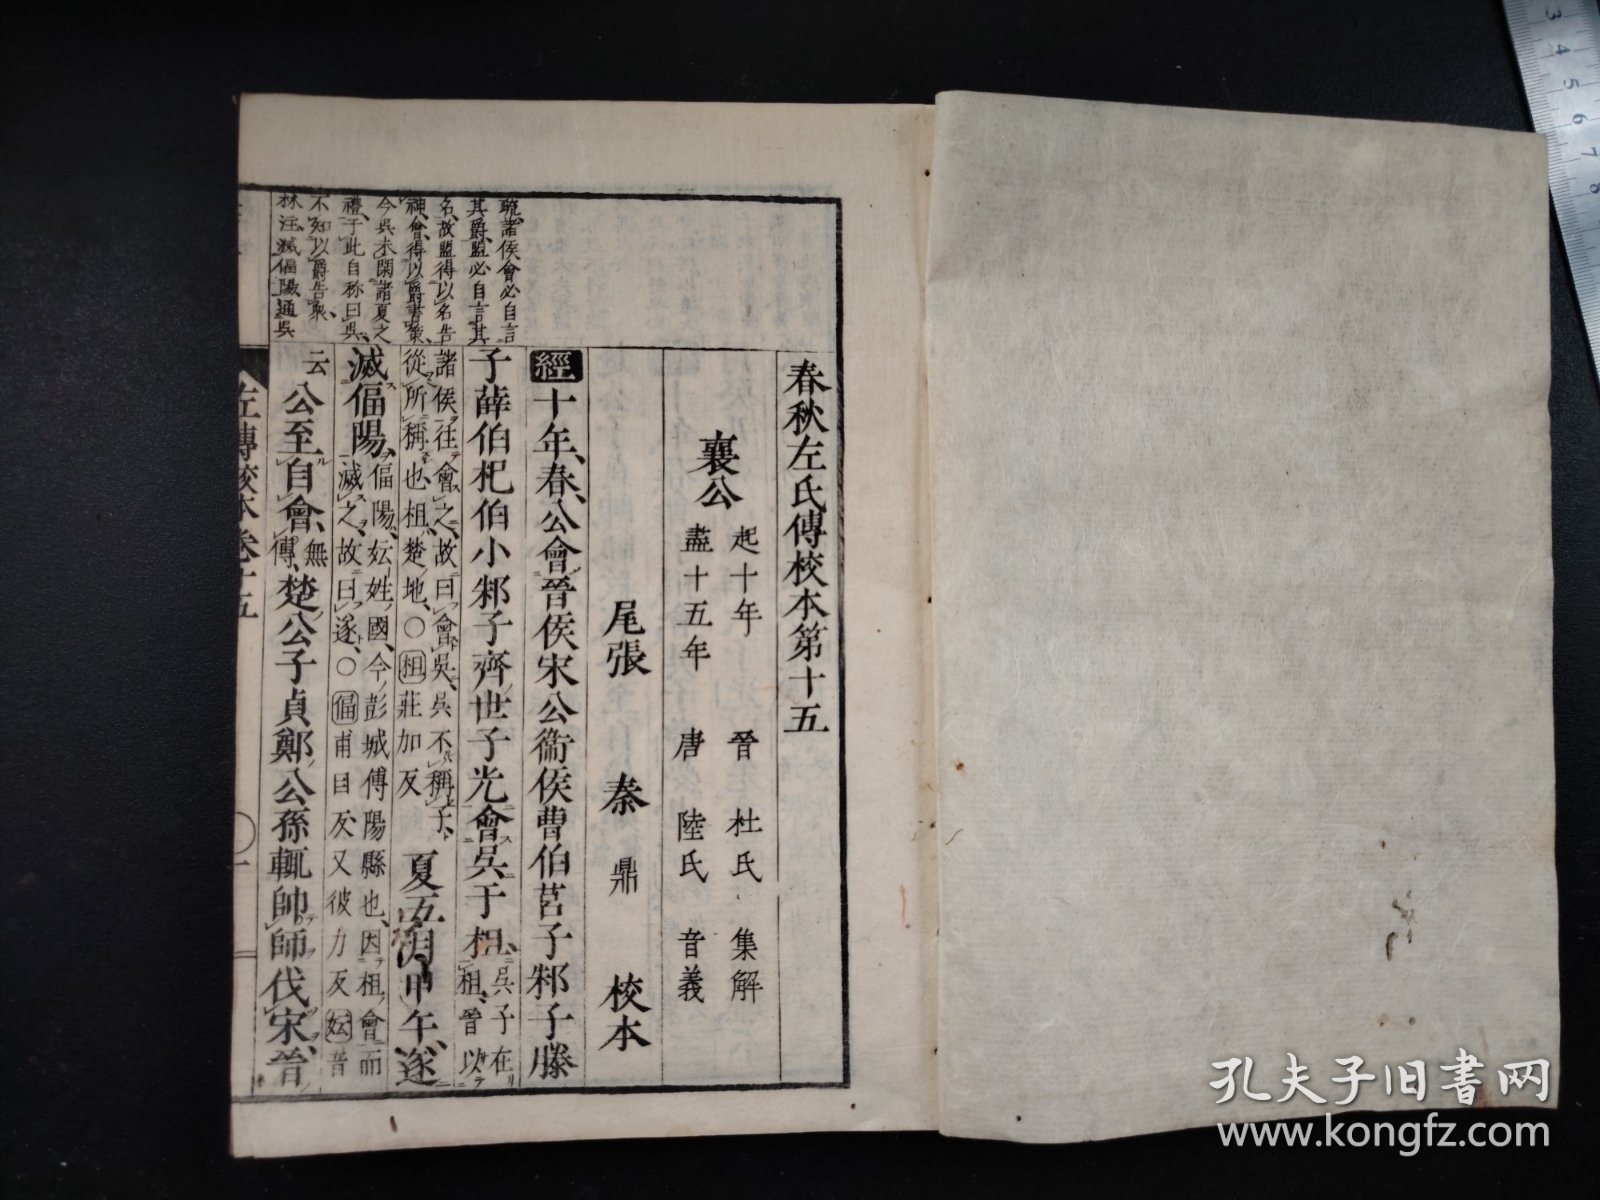 春秋左氏傳校本第十五
襄公
起十年
盡十五年
晉 杜氏 集解
唐 陸氏 音義
尾張 秦 鼎 校本
經十年、春、公會晉侯宋公衞侯曹伯莒子邾子滕
子薛伯杞伯小邾子齊世子光會吳于柤、
吳子在
柤、晉以
諸侯往會之、故曰會吳、吳不稱子、
從所稱也、柤、楚地、○柤莊加反
夏五月甲午、遂
滅偪陽、
偪陽、妘姓國、今彭城傅陽縣也、因柤會而
滅之、故曰遂、○偪甫目反又彼力反妘音
云
公至自會、
無
傳
楚公子貞鄭公孫輒帥師伐宋、晉
疏、諸侯會必自言
其爵、盟必自言其
名、故盟得以名告
神、會得以爵書策、
今吳未閑諸夏之
禮、于此自称曰吳、
不知以爵告衆、
林注、滅偪陽通吳
左傳校本卷十五
○一
3
4
5
6
7
8
孔夫子旧書网
www.kongfz.com